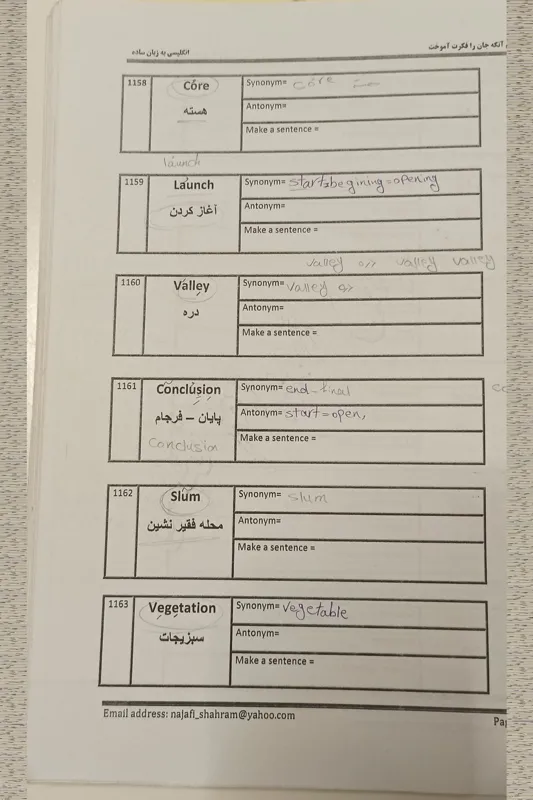 آنکه جان را فکرت آموخت
انگلیسی به زبان ساده
1158
Core
هسته
Synonym= core
Antonym=
Make a sentence =
launch
1159
Launch
آغاز کردن
Synonym= start=begining=opening
Antonym=
Make a sentence =
valley دره valley valley
1160
Valley
دره
Synonym= valley
Antonym=
Make a sentence =
1161
Conclusion
پایان – فرجام
Conclusion
Synonym= end-final
Antonym= start=open,
Make a sentence =
1162
Slum
محله فقیر نشین
Synonym= slum
Antonym=
Make a sentence =
1163
Vegetation
سبزیجات
Synonym= vegetable
Antonym=
Make a sentence =
Email address: najafi_shahram@yahoo.com